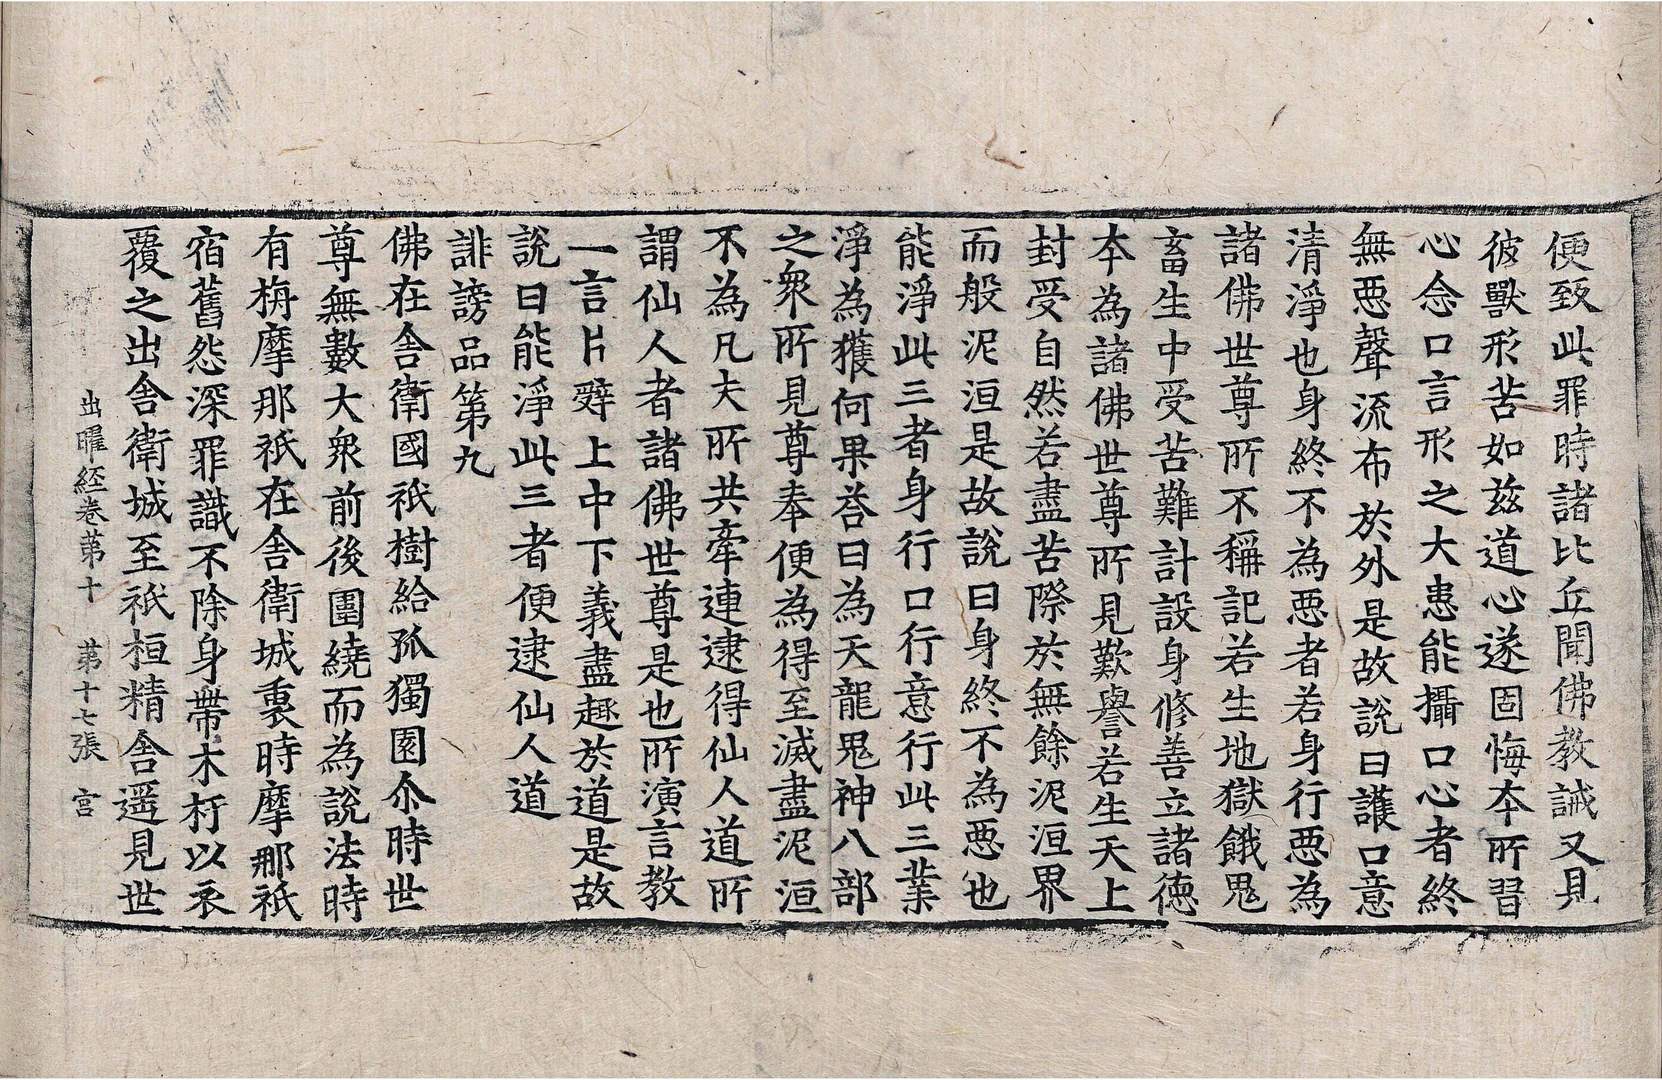 便致此罪時諸比丘聞佛教誡又見
彼獸形苦如茲道心遂固悔本所習
心念口言形之大患能攝口心者終
無惡聲流布於外是故說曰護口意
清淨也身終不為惡者若身行惡為
諸佛世尊所不稱記若生地獄餓鬼
畜生中受苦難計設身修善立諸德
本為諸佛世尊所見歎譽若生天上
封受自然若盡苦際於無餘泥洹界
而般泥洹是故說曰身終不為惡也
能淨此三者身行口行意行此三業
淨為獲何果荅曰為天龍鬼神八部
之衆所見尊奉便為得至滅盡泥洹
不為凡夫所共牽連逮得仙人道所
謂仙人者諸佛世尊是也所演言教
一言片辤上中下義盡趣於道是故
說曰能淨此三者便逮仙人道
誹謗品第九
佛在舍衛國祇樹給孤獨園尒時世
尊無數大衆前後圍繞而為說法時
有栴摩那祇在舍衛城裏時摩那祇
宿舊怨深罪識不除身帶木杅以衣
覆之出舍衛城至祇桓精舍遥見世
出曜経卷苐十 苐十七張 宫